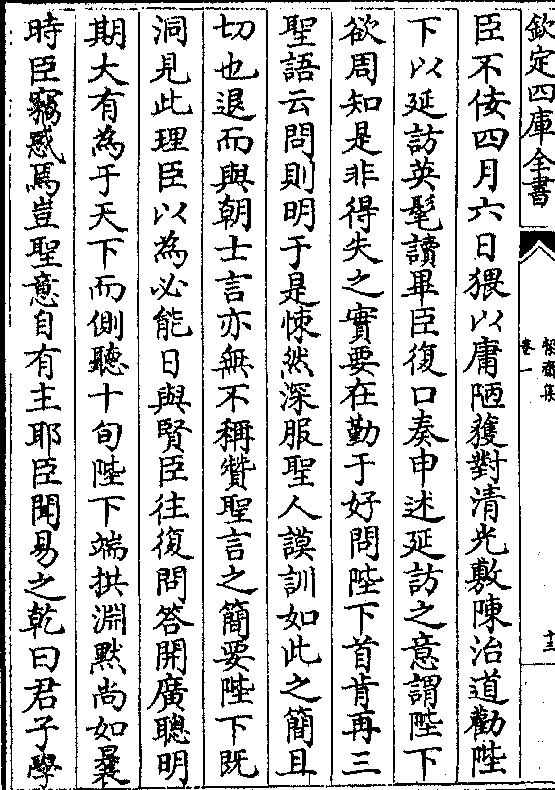 欽定四庫全書
絜齋集
卷一
十三
臣不佞四月六日猥以庸陋獲對清光敷陳治道勸陛
下以延訪英髦讀畢臣復口奏申述延訪之意謂陛下
欲周知是非得失之實要在勤于好問陛下首肯再三
聖語云問則明于是悚然深服聖人謨訓如此之簡且
切也退而與朝士言亦無不稱贊聖言之簡要陛下既
洞見此理臣以為必能日與賢臣往復問答開廣聰明
期大有為于天下而側聽十旬陛下端拱淵默尚如曩
時臣竊惑焉豈聖意自有主耶臣聞易之乾曰君子學